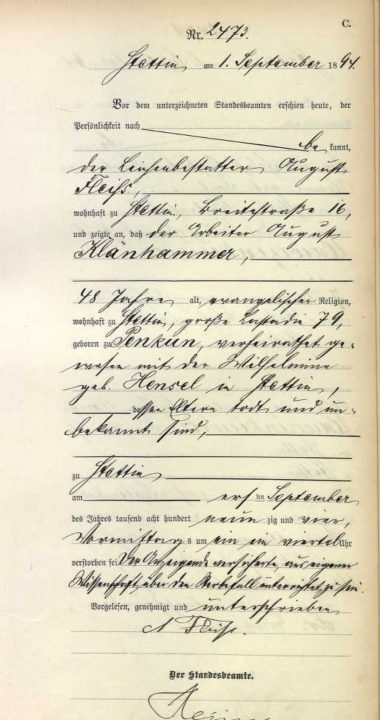 C.
Nr. 2473.
Stettin am 1. September 1894.
Vor dem unterzeichneten Standesbeamten erschien heute, der
Persönlichkeit nach
be kannt,
der Leichenbestatter August
Fleiß,
wohnhaft zu Stettin, Breitestraße 16,
und zeigte an, daß der Arbeiter August
Klänhammer,
48 Jahre alt, evangelischer Religion,
wohnhaft zu Stettin, große Lastadie 79,
geboren zu Penkun, verheirathet ge-
wesen mit der Wilhelmine
geb. Hensel in Stettin,
dessen Eltern todt und un-
bekannt sind,
zu Stettin
am ersten September
des Jahres tausend acht hundert neun zig und vier,
Vormittags um ein ein viertel Uhr
verstorben sei. Der Anzeigende versicherte, aus eigener
Wissenschaft über den Sterbefall unterrichtet zu sein.
Vorgelesen, genehmigt und unterschrieben
A Fleiß.
Der Standesbeamte.